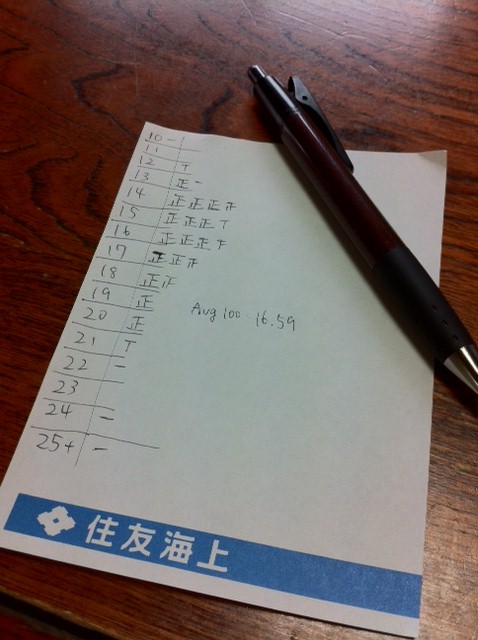 10-
11
12 T
13 正一
14 正正正正
15 正正正T
16 正正正下
17 正正正
18 正正
19 正
20 正
21 T
22 一
23
24 一
25+ 一
Avg 100 - 16.59
住友海上